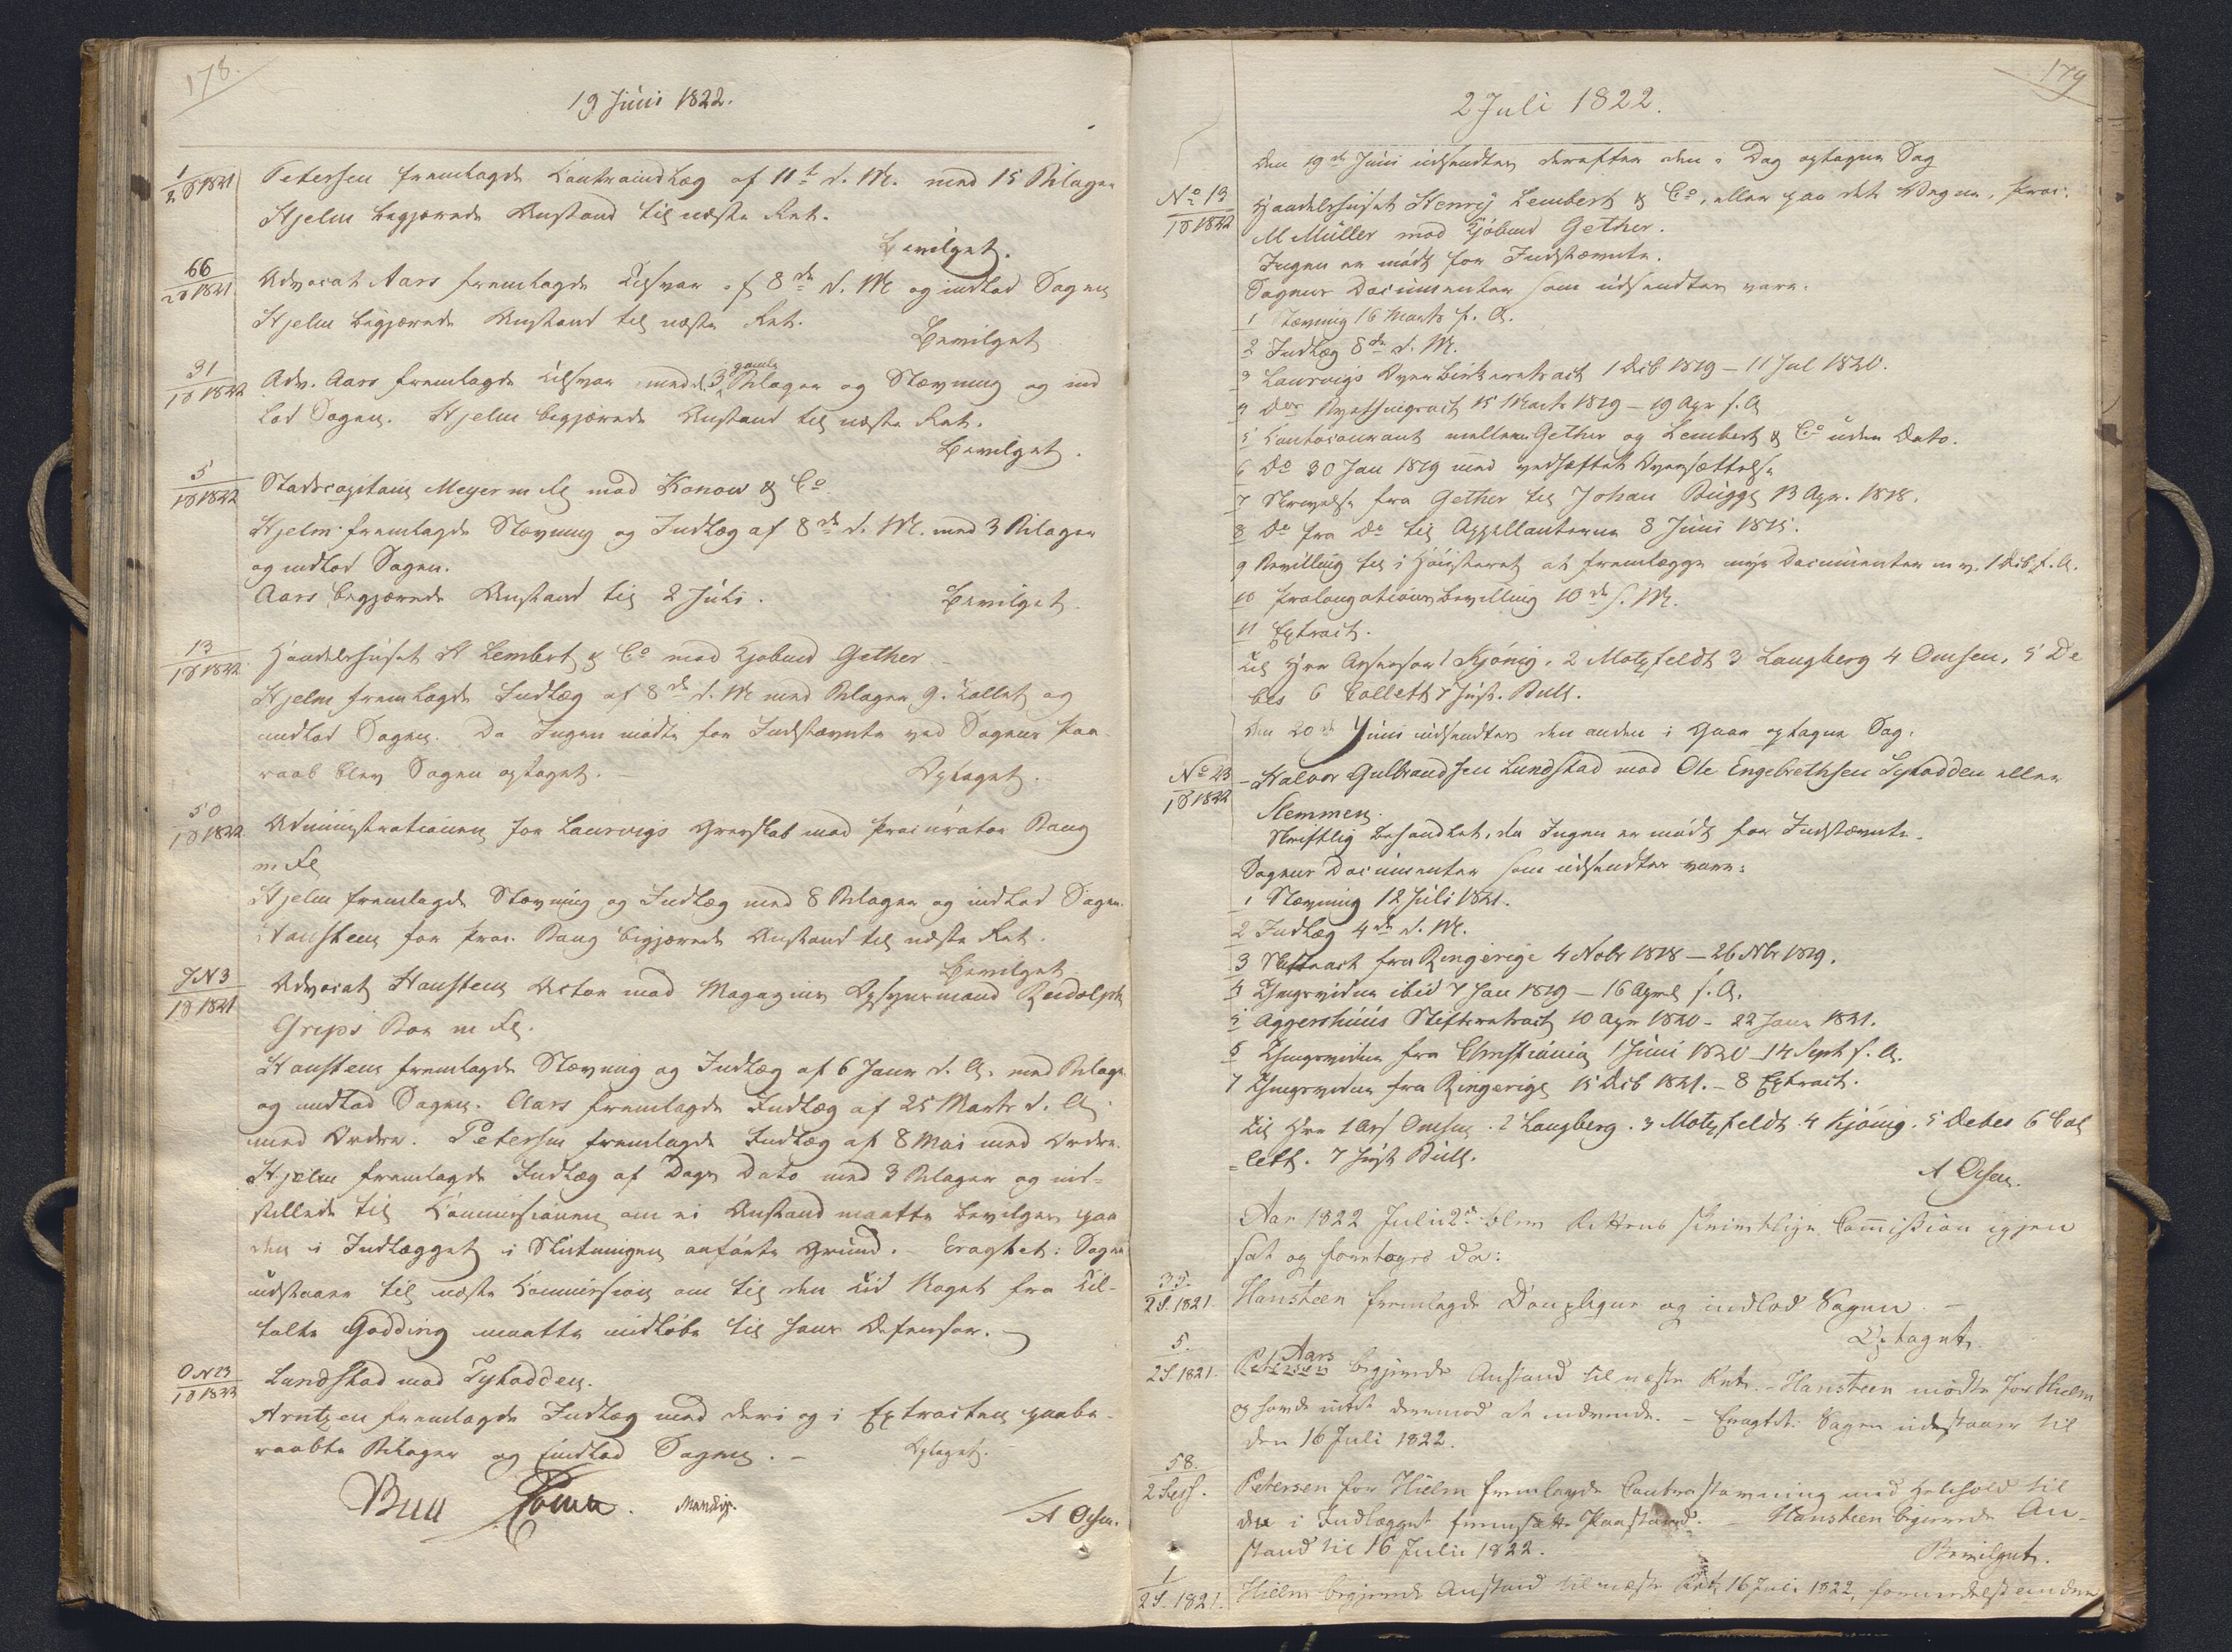 178.
19 Juni 1822.
1
2 S 1821
Petersen fremlagde Contraindlæg af 11te d. M. med 15 Bilager
Hjelm begjærede Anstand til næste Ret.
Bevilget.
66
2 S 1821
Advocat Aars fremlagde Tilsvar af 8de d. M og indlod Sagen
Hjelm begjærede Anstand til næste Ret.
Bevilget
31
1 S 1822
Adv. Aars fremlagde Tilsvar med 3 gamle Bilager og Stævning og ind
lod Sagen. Hjelm begjærede Anstand til næste Ret.
Bevilget.
5
1 S 1822
Stadscapitain Meyer m fl mod Konow & Co.
Hjelm fremlagde Stævning og Indlæg af 8de d. M. med 3 Bilager
og indlod Sagen.
Aars begjærede Anstand til 2 Juli.
Bevilget.
13
1 S 1822
Handelshuset H Lembert & Co mod Gether
Hjelm fremlagde Indlæg af 8de d. M med Bilager 9. Tallet og
indlod Sagen. Da Ingen mødte for Indstævnte ved Sagens Paa
raab blev Sagen optaget. –
Optaget.
50
1 S 1822
Administrationen for Laurvigs Grevskab mod Procurator Bang
m fl
Hjelm fremlagde Stævning og Indlæg med 8 Bilager og indlod Sagen.
Hansteen for Proc. Bang begjærede Anstand til næste Ret.
Bevilget
J N 3
1 S 1821
Advocat Hansteen Actor mod Magazins Opsynsmand Rudolph
Greps Boe m fl.
Hansteen fremlagde Stævning og Indlæg af 6 Janr d. A. med Bilage
og indlod Sagen. Aars fremlagde Indlæg af 25 Marts d. A.
med Ordre. Petersen fremlagde Indlæg af 8 Mai med Ordre.
Hjelm fremlagde Indlæg af Dags Dato med 3 Bilager og ind-
stillede til Commissionen om ei Anstand maatte bevilges paa
den i Indlægget i Slutningen anførte Grund. – Eragtet: Sagen
udstaaer til næste Commission om til den Tid Noget fra Til-
talte Godding maatte indløbe til hans Defensor.
O N 23
1 S 1822
Lundstad mod Sytadden.
Arntzen fremlagde Indlæg med deri og i Extracten paabe-
raabte Bilager og indlod Sagen. –
Optaget.
Bull
Mandix.
A Olsen.
179
2 Juli 1822.
Den 19de Juni udsendtes derefter den i Dag optagne Sag
No 13
1 S 1822
Handelshuset Henry Lembert & Co, eller paa dets Vegne, Proc:
M Müller mod Gether.
Ingen er mødt for Indstævnte.
Sagens Documenter som udsendtes vare:
1 Stævning 16 Marts f. A.
2 Indlæg 8de d. M.
3 Laurvigs Overbirkeretsact 1 Dcb 1819 – 11 Jul 1820.
4 Dos Byethingsact 15 Marts 1819 – 19 Apr f. A
5 Contocourant mellem Gether og Lembert & Co uden Dato.
6 Do 30 Jan 1819 med vedhæftet Oversættelse
7 Skrivelse fra Gether til Johan Bugge 13 Apr. 1818.
8 Do fra Do til Appellanterne 8 Juni 1815.
9 Bevilling til i Høiesteret at fremlægge nye Documenter m v. 1 Dcb f. A.
10 Prolongations Bevilling 10de f. M.
11 Extract.
Til Hrr Assessor 1 Kjønig, 2 Motzfeldt 3 Langberg 4 Omsen, 5 De
bes 6 Collett 7 Just. Bull.
Den 20de Juni udsendtes den anden i Gaar optagne Sag:
No 23
1 S 1822
Halvor Gulbrandsen Lundstad mod Ole Engebrethsen Sytadden eller
Stemmen.
Skriftlig behandlet, da Ingen er mødt for Indstævnte.
Sagens Documenter som udsendtes vare:
1 Stævning 12 Juli 1821.
2 Indlæg 4de d. M.
3 fra Ringerige 4 Nobr 1818 – 26 Nbr 1819.
4 Thingsvidne ibid 7 Jan 1819 – 16 April f. A.
5 Aggershuus Stiftsretsact 10 Apr 1820 – 22 Janr 1821.
6 Thingsvidne fra Christiania 1 Juni 1820 – 14 Sept f. A.
7 Thingsvidne fra Ringerige 15 Dcb 1821. – 8 Extract.
Til Hrr 1 Ass Omsen. 2 Langberg. 3 Motzfeldt. 4 Kjønig. 5 Debes 6 Col
lett. 7 Just Bull.
A Olsen.
Aar 1822 Julii 2den blev Rettens skrivtlige Commission igjen
sat og foretoges da:
35.
2 S. 1821.
Hansteen fremlagde Douplique og indlod Sagen. –
Optaget.
5.
2 S. 1821.
Aars begjærede Anstand til næste Ret. – Hansteen mødte for Hielm
og havde intet derimod at indvende. – Eragtet: Sagen udestaaer til
den 16 Juli 1822.
58.
2 Sess.
Petersen for Hielm fremlagde Contrastævning med Henhold til
den i Indlægget fremsatte Paastand. – Hansteen begjærede An-
stand til 16 Julii 1822.
Bevilget.
1
2 S. 1821.
Hielm begjærede Anstand til næste Ret, 16 Juli 1822,